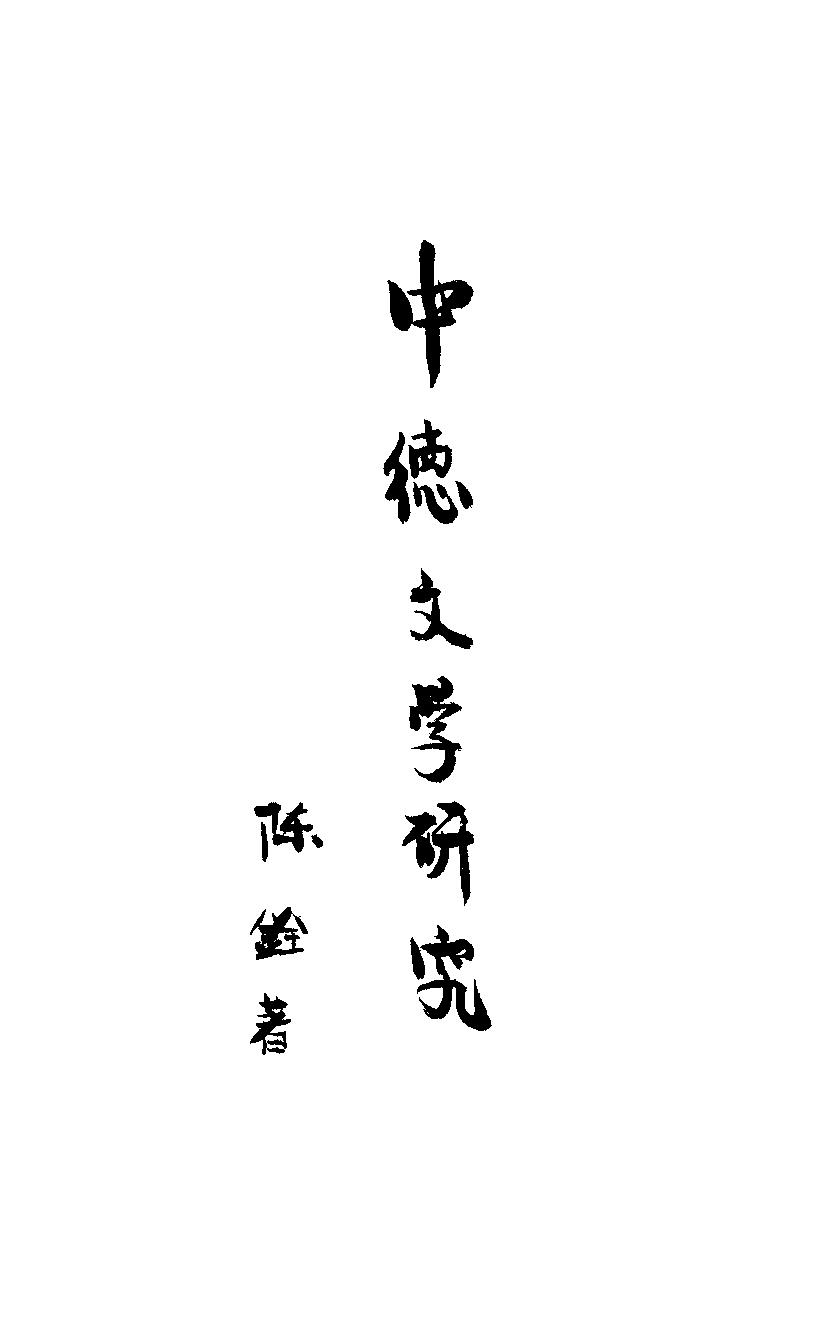 中德文学研究
陈銓著